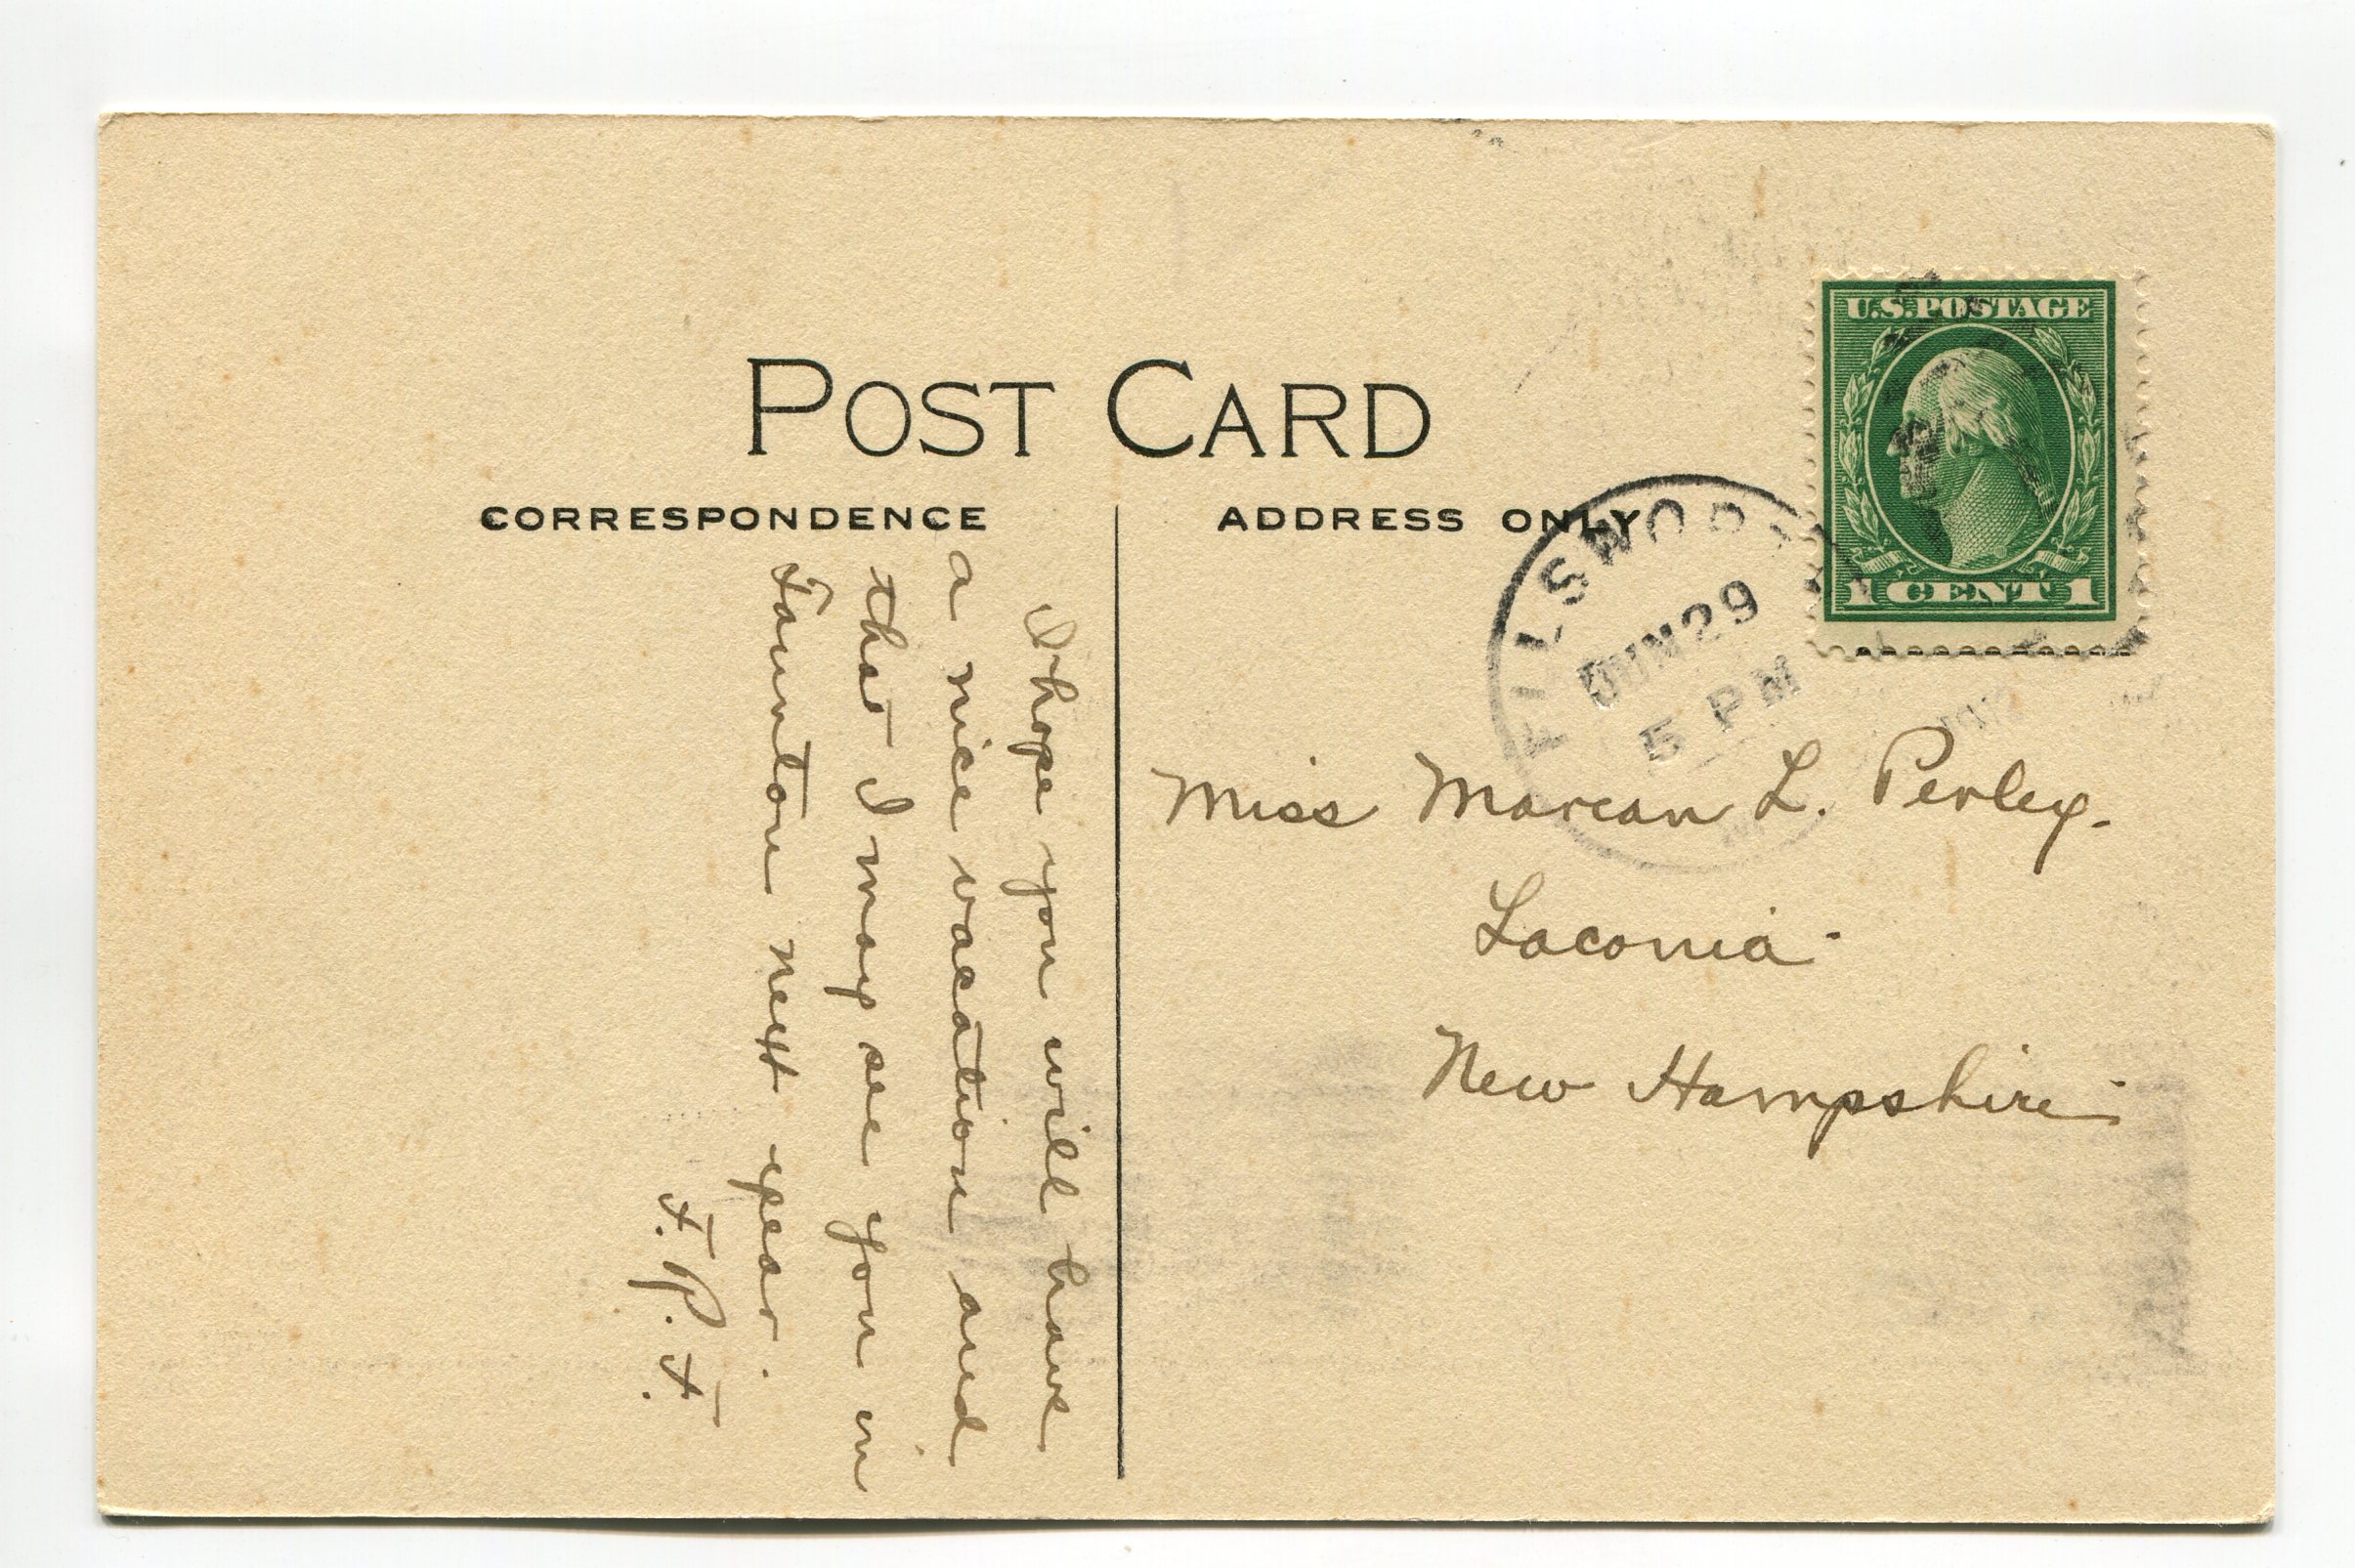 POST CARD
CORRESPONDENCE
ADDRESS ONLY
U.S. POSTAGE
1 CENT 1
JUN 29
5 PM
I hope you will have
a nice vacation and
that I may see you in
Taunton next year.
F. P. F.
Miss Marian L. Perley.
Laconia.
New Hampshire